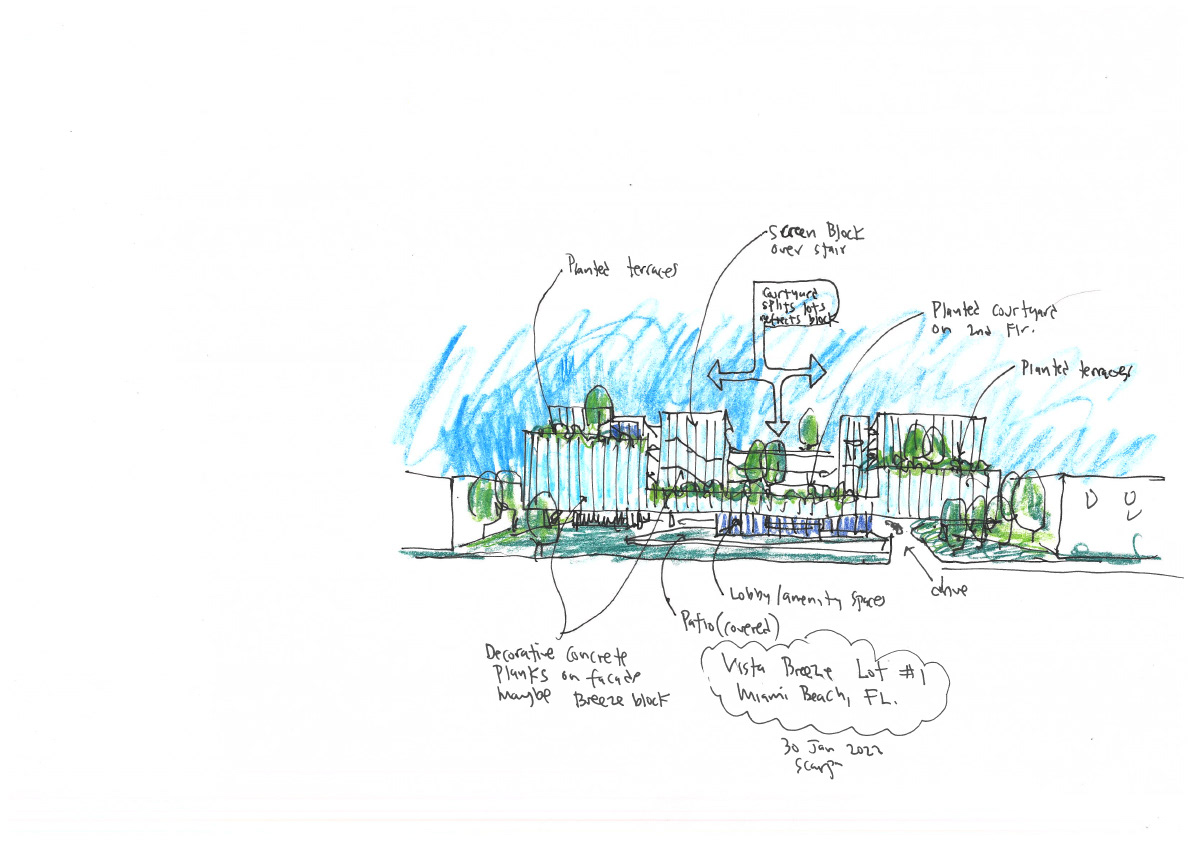 Screen Block
over stair
Planted terraces
Courtyard
splits lots
block
Planted courtyard
on 2nd Flr.
Planted terraces
drive
Lobby/amenity spaces
Patio (covered)
Decorative Concrete
Planks on facade
maybe Breeze block
Vista Breeze Lot #1
Miami Beach, FL.
30 Jan 2022
Scarpa